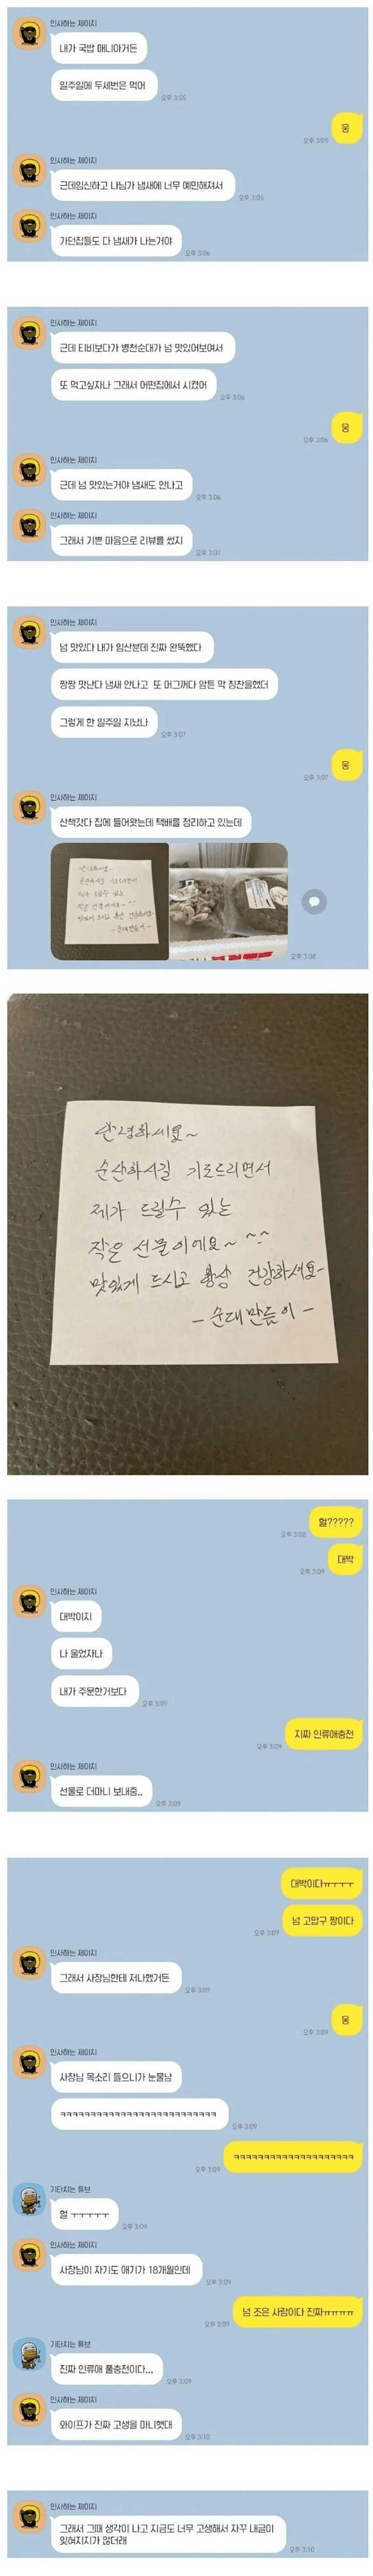 인사하는 제이지
내가 국밥 매니아거든
일주일에 두세번은 먹어
오후 3:05
웅
오후 3:05
인사하는 제이지
근데임신하고 나님가 냄새에 너무 예민해져서
오후 3:05
인사하는 제이지
가던집들도 다 냄새가 나는거야
오후 3:06
인사하는 제이지
근데 티비보다가 병천순대가 넘 맛있어보여서
또 먹고싶자나 그래서 어떤집에서 시켰어
오후 3:06
웅
오후 3:06
인사하는 제이지
근데 넘 맛있는거야 냄새도 안나고
오후 3:06
인사하는 제이지
그래서 기쁜 마음으로 리뷰를 썼지
오후 3:07
인사하는 제이지
넘 맛있다 내가 임산분데 진짜 완뚝했다
짱짱 맛난다 냄새 안나고 또 머그꺼다 암튼 막 칭찬을했더
그렇게 한 일주일 지났나
오후 3:07
웅
오후 3:07
인사하는 제이지
산책갓다 집에 들어왔는데 택배를 정리하고 있는데
오후 3:08
안녕하세요~
순산하시길 기도드리면서
제가 드릴수 있는
작은 선물이에요~ ^^
맛있게 드시고 항상 건강하세요~
- 순대만들이 -
헐?????
오후 3:08
대박
오후 3:09
인사하는 제이지
대박이지
나 울었자나
내가 주문한거보다
오후 3:09
지짜 인류애충전
오후 3:09
인사하는 제이지
선물로 더마니 보내줌..
오후 3:09
대박이다ㅠㅜㅜㅜ
넘 고맙구 짱이다
오후 3:09
인사하는 제이지
그래서 사장님한테 저나했거든
오후 3:09
웅
오후 3:09
인사하는 제이지
사장님 목소리 들으니가 눈물남
ㅋㅋㅋㅋㅋㅋㅋㅋㅋㅋㅋㅋㅋㅋㅋㅋㅋㅋㅋㅋㅋㅋㅋㅋㅋㅋ
오후 3:09
ㅋㅋㅋㅋㅋㅋㅋㅋㅋㅋㅋㅋㅋㅋㅋㅋㅋㅋㅋㅋ
오후 3:09
기타치는 튜브
헐 ㅜㅜㅜㅜㅜ
오후 3:09
인사하는 제이지
사장님이 자기도 애기가 18개월인데
오후 3:09
넘 조은 사람이다 진짜ㅠㅠㅠㅠ
오후 3:09
기타치는 튜브
진짜 인류애 풀충전이다...
오후 3:09
인사하는 제이지
와이프가 진짜 고생을 마니했대
오후 3:10
인사하는 제이지
그래서 그때 생각이 나고 지금도 너무 고생해서 자꾸 내글이
잊혀지지가 않더래
오후 3:10